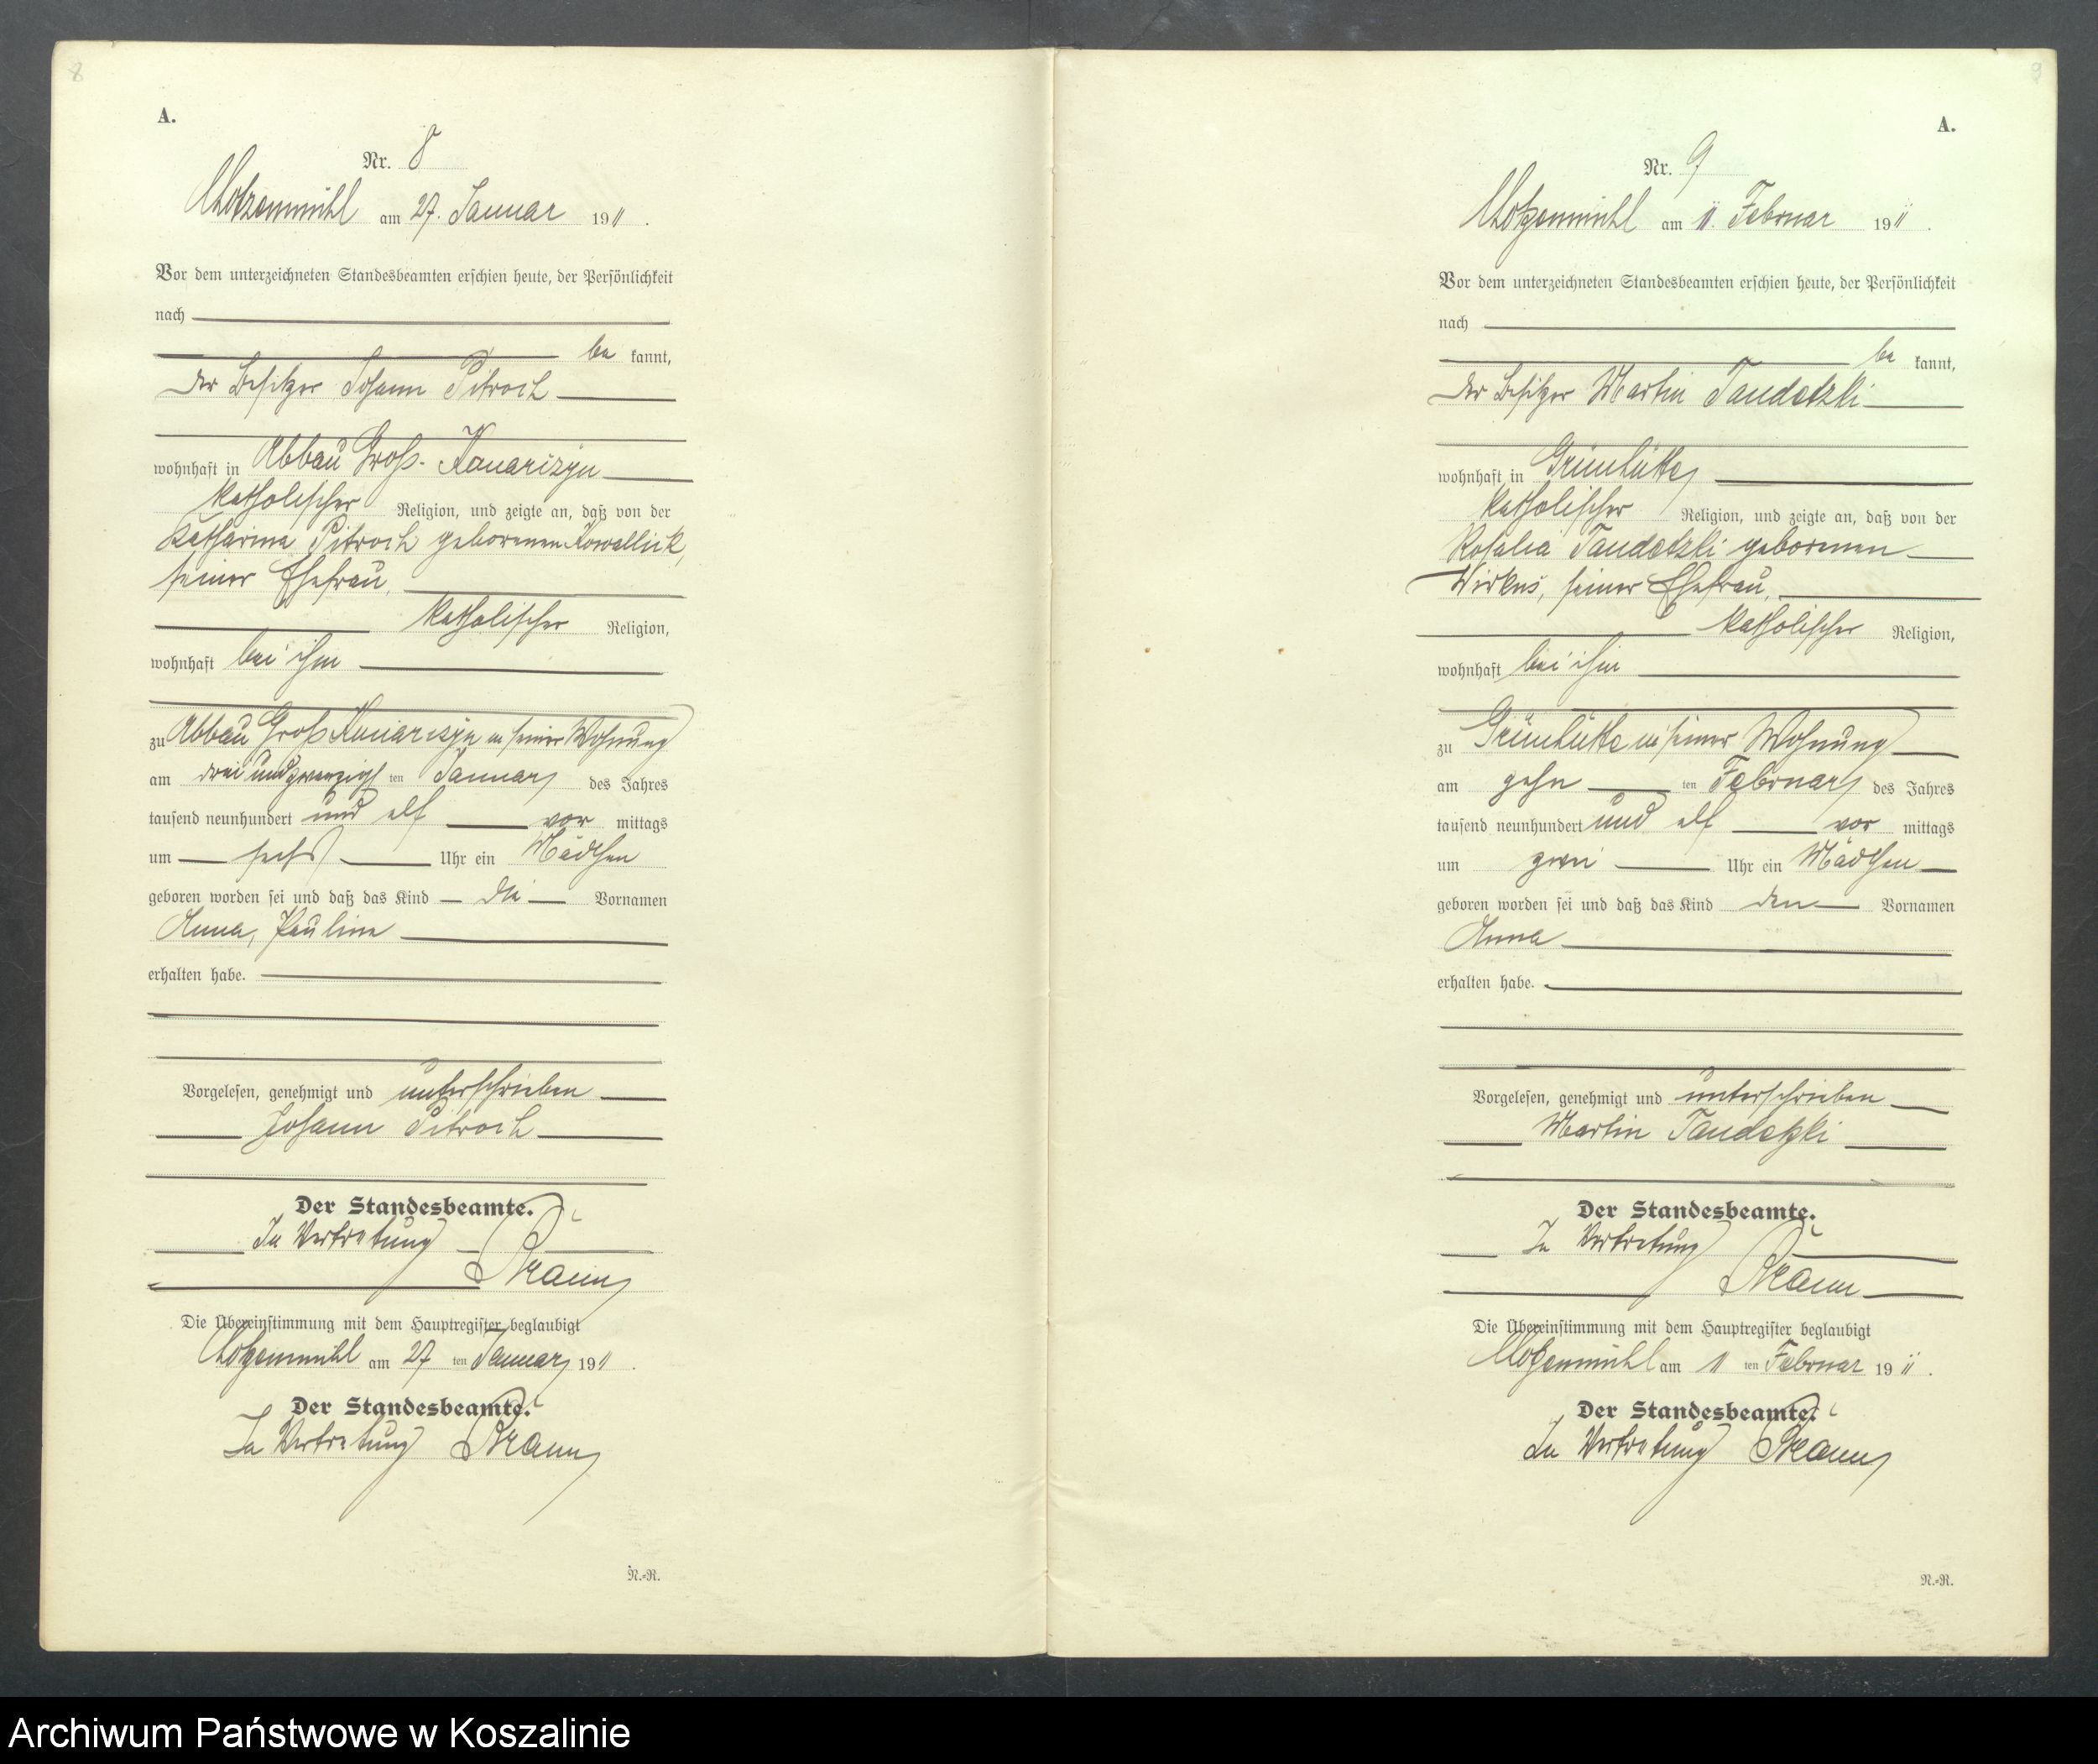 8
A.
Nr. 8
Chotzenmühl am 27. Januar 1911.
Vor dem unterzeichneten Standesbeamten erschien heute, der Persönlichkeit
nach
be kannt,
der Besitzer Johann Pitroch
wohnhaft in Abbau Groß-
katholischer Religion, und zeigte an, daß von der
Katharina Pitroch geborenen Kowallick,
seiner Ehefrau,
katholischer Religion,
wohnhaft bei ihm
zu Abbau Groß in seiner Wohnung
am drei und zwanzigsten Januar des Jahres
tausend neunhundert und elf vor mittags
um sechs Uhr ein Mädchen
geboren worden sei und daß das Kind die Vornamen
Anna, Pauline
erhalten habe.
Vorgelesen, genehmigt und unterschrieben
Johann Pitroch
Der Standesbeamte.
In Vertretung
Die Übereinstimmung mit dem Hauptregister beglaubigt
Chotzenmühl am 27 ten Januar 1911.
Der Standesbeamte.
In Vertretung
N.-R.
9
A.
Nr. 9
Chotzenmühl am 11. Februar 1911.
Vor dem unterzeichneten Standesbeamten erschien heute, der Persönlichkeit
nach
be kannt,
der Besitzer Martin Tandetzki
wohnhaft in Grünhütte
katholischer Religion, und zeigte an, daß von der
Rosalia Tandetzki geborenen
Wirkus, seiner Ehefrau,
katholischer Religion,
wohnhaft bei ihm
zu Grünhütte in seiner Wohnung
am zehn ten Februar des Jahres
tausend neunhundert und elf vor mittags
um zwei Uhr ein Mädchen
geboren worden sei und daß das Kind den Vornamen
Anna
erhalten habe.
Vorgelesen, genehmigt und unterschrieben
Martin Tandetzki
Der Standesbeamte.
In Vertretung
Die Übereinstimmung mit dem Hauptregister beglaubigt
Chotzenmühl am 11 ten Februar 1911.
Der Standesbeamte.
In Vertretung
N.-R.
Archiwum Państwowe w Koszalinie